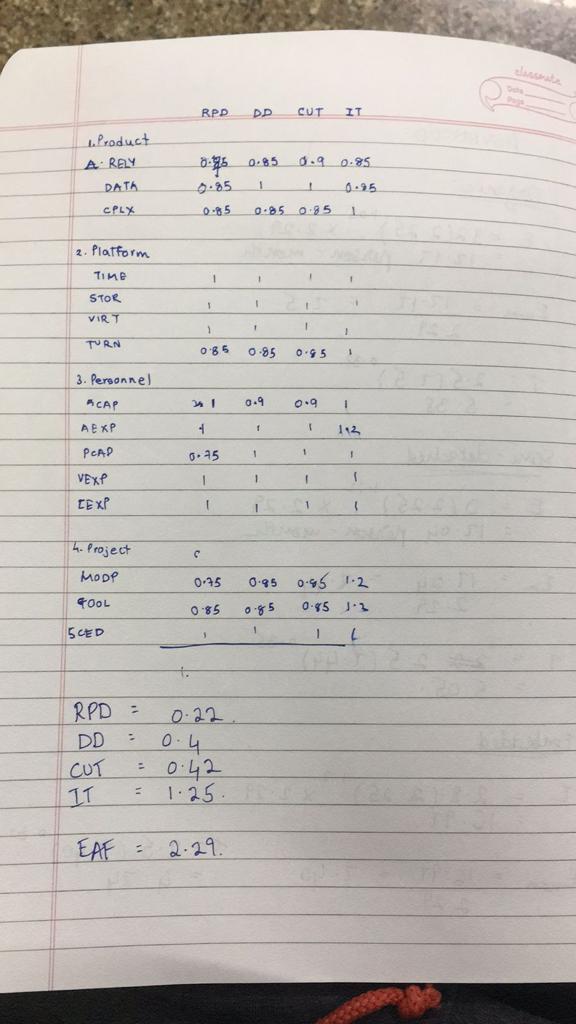 classmate
Date
Page
RPD DD CUT IT
1. Product
A. RELY 0.75 0.85 0.9 0.85
DATA 0.85 1 1 0.85
CPLX 0.85 0.85 0.85 1
2. Platform
TIME 1 1 1 1
STOR 1 1 1 1
VIRT 1 1 1 1
TURN 0.85 0.85 0.85 1
3. Personnel
ACAP 1 0.9 0.9 1
AEXP 1 1 1 1.2
PCAP 0.75 1 1 1
VEXP 1 1 1 1
LEXP 1 1 1 1
4. Project
MODP 0.75 0.85 0.85 1.2
TOOL 0.85 0.85 0.85 1.2
SCED 1 1 1 1
1.
RPD = 0.22.
DD = 0.4
CUT = 0.42
IT = 1.25.
EAF = 2.29.